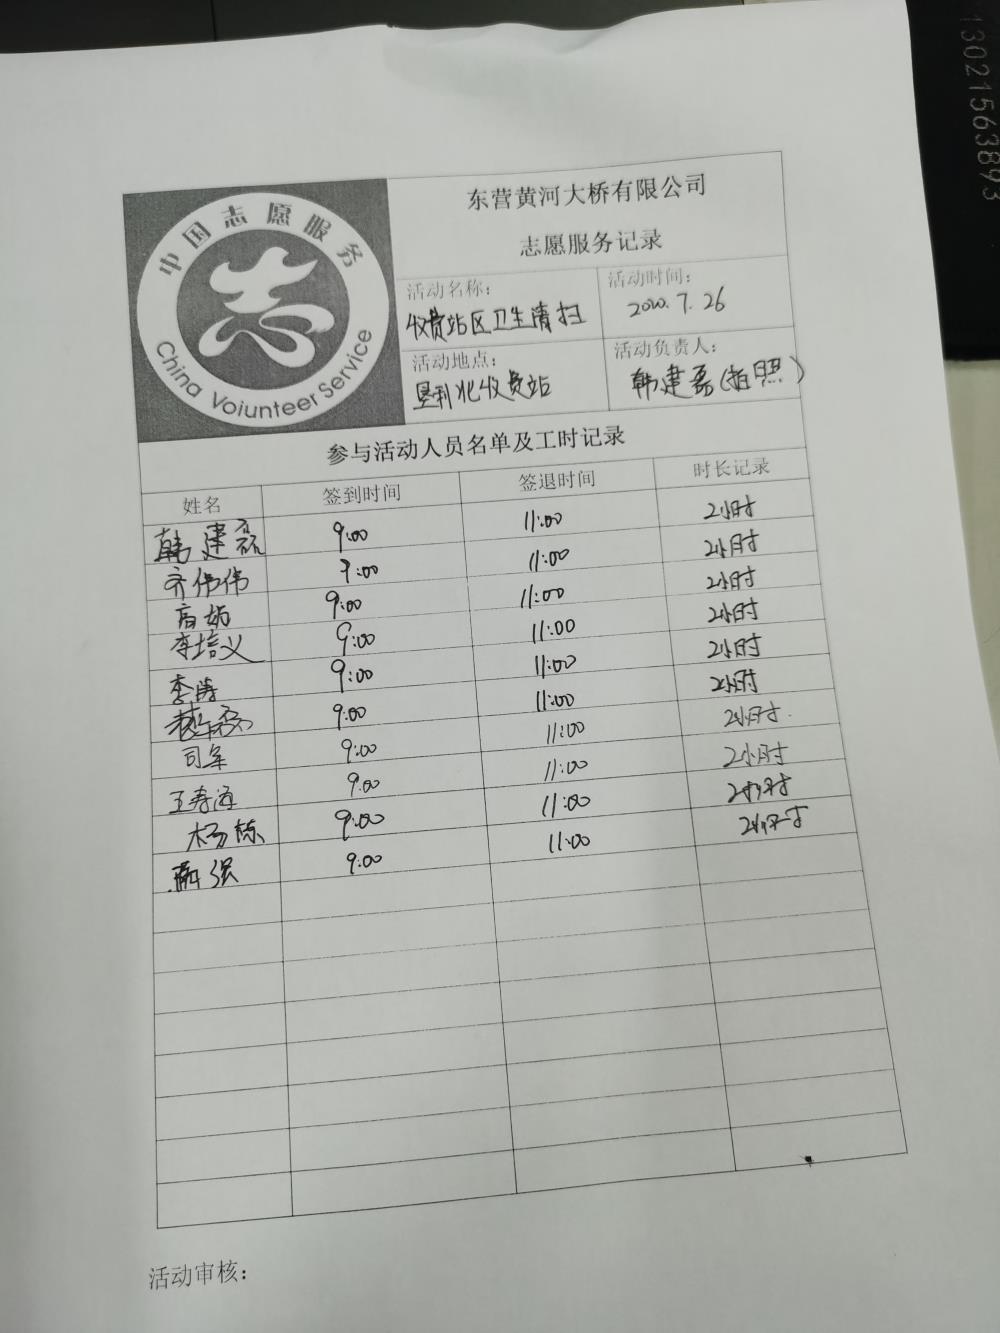 13021563893
中国志愿服务
China Voiunteer Service
东营黄河大桥有限公司
志愿服务记录
活动名称：
收费站区卫生清扫
活动时间：
2020.7.26
活动地点：
垦利北收费站
活动负责人：
韩建磊（拍照）
参与活动人员名单及工时记录
姓名 签到时间 签退时间 时长记录
韩建磊 9:00 11:00 2小时
齐伟伟 9:00 11:00 2小时
高娟 9:00 11:00 2小时
李培义 9:00 11:00 2小时
李涛 9:00 11:00 2小时
9:00 11:00 2小时
司军 9:00 11:00 2小时
王寿海 9:00 11:00 2小时
杨栋 9:00 11:00 2小时
强 9:00 11:00 2小时
活动审核：